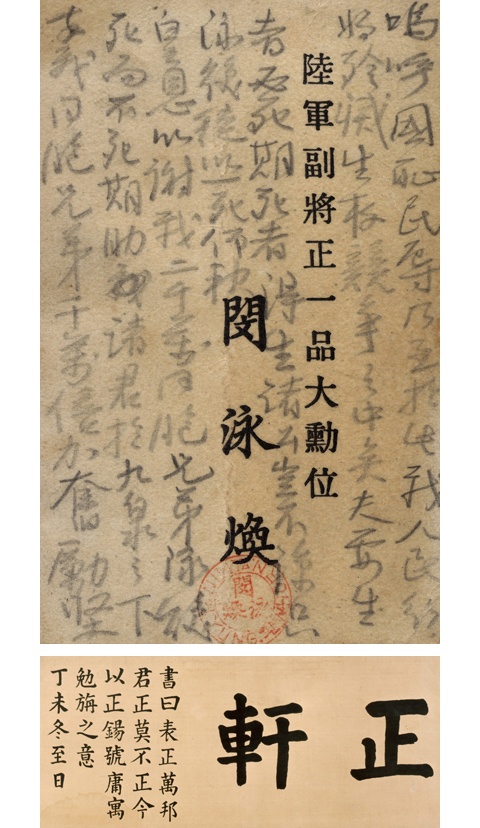 陸軍副將正一品大勳位
閔泳煥
嗚呼國恥民辱乃至於此我人民行
將殄滅生存競爭之中矣夫要生
者必死期死者得生諸公豈不諒只
泳煥徒以一死仰報
皇恩以謝我二千萬同胞兄弟泳煥
死而不死期助我諸君於九泉之下
幸我同胞兄弟千萬倍加奮勵堅
正軒
書曰表正萬邦
君正莫不正今
以正錫號庸寓
勉旃之意
丁未冬至日